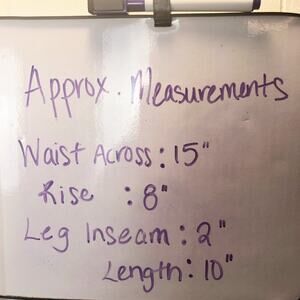 Approx. Measurements
Waist Across: 15"
Rise : 8"
Leg Inseam: 2"
Length: 10"